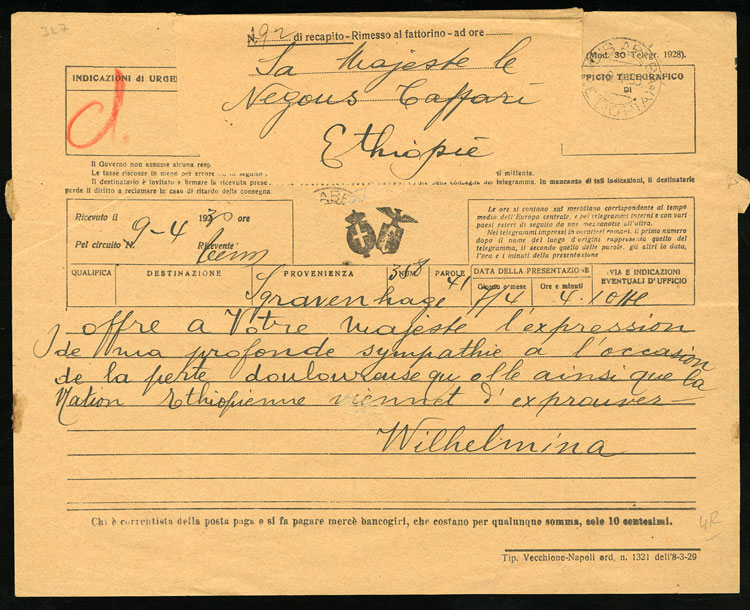 327
N. 92 di recapito - Rimesso al fattorino - ad ore
(Mod. 30 Telegr. 1928).
INDICAZIONI di URGE
d.
Sa Majeste le
Negous Taffari
Ethiopie
FFICIO TELEGRAFICO
DI
ETIOPIA
Il Governo non assume alcuna resp
Le tasse riscosse in meno per errore
Il destinatario è invitato a firmare la ricevuta prese
mittente.
del telegramma. In mancanza di tali indicazioni, il destinatario
perde il diritto a reclamare in caso di ritardo della consegna.
Ricevuto il 9-4 1930 ore
Pel circuito N. Ricevente
Le ore si contano sul meridiano corrispondente al tempo
medio dell'Europa centrale, e pei telegrammi interni e con vari
paesi esteri di seguito da una mezzanotte all'altra.
Nei telegrammi impressi in caratteri romani, il primo numero
dopo il nome del luogo d'origine rappresenta quello del
telegramma, il secondo quello delle parole, gli altri la data,
l'ora e i minuti della presentazione
QUALIFICA DESTINAZIONE PROVENIENZA NUM. PAROLE DATA DELLA PRESENTAZIONE VIA E INDICAZIONI EVENTUALI D'UFFICIO
Giorno e mese Ore e minuti
Sgravenhage 318 41 8/4 4.10
J offre a Votre majeste l'expression
de ma profonde sympathie a l'occasion
de la perte douloureuse qu elle ainsi que la
Nation Ethiopienne viennet d'exprouver—
Wilhelmina
Chi è correntista della posta paga e si fa pagare mercè bancogiri, che costano per qualunque somma, sole 10 centesimi.
4R
Tip. Vecchione-Napoli ord. n. 1321 dell'8-3-29